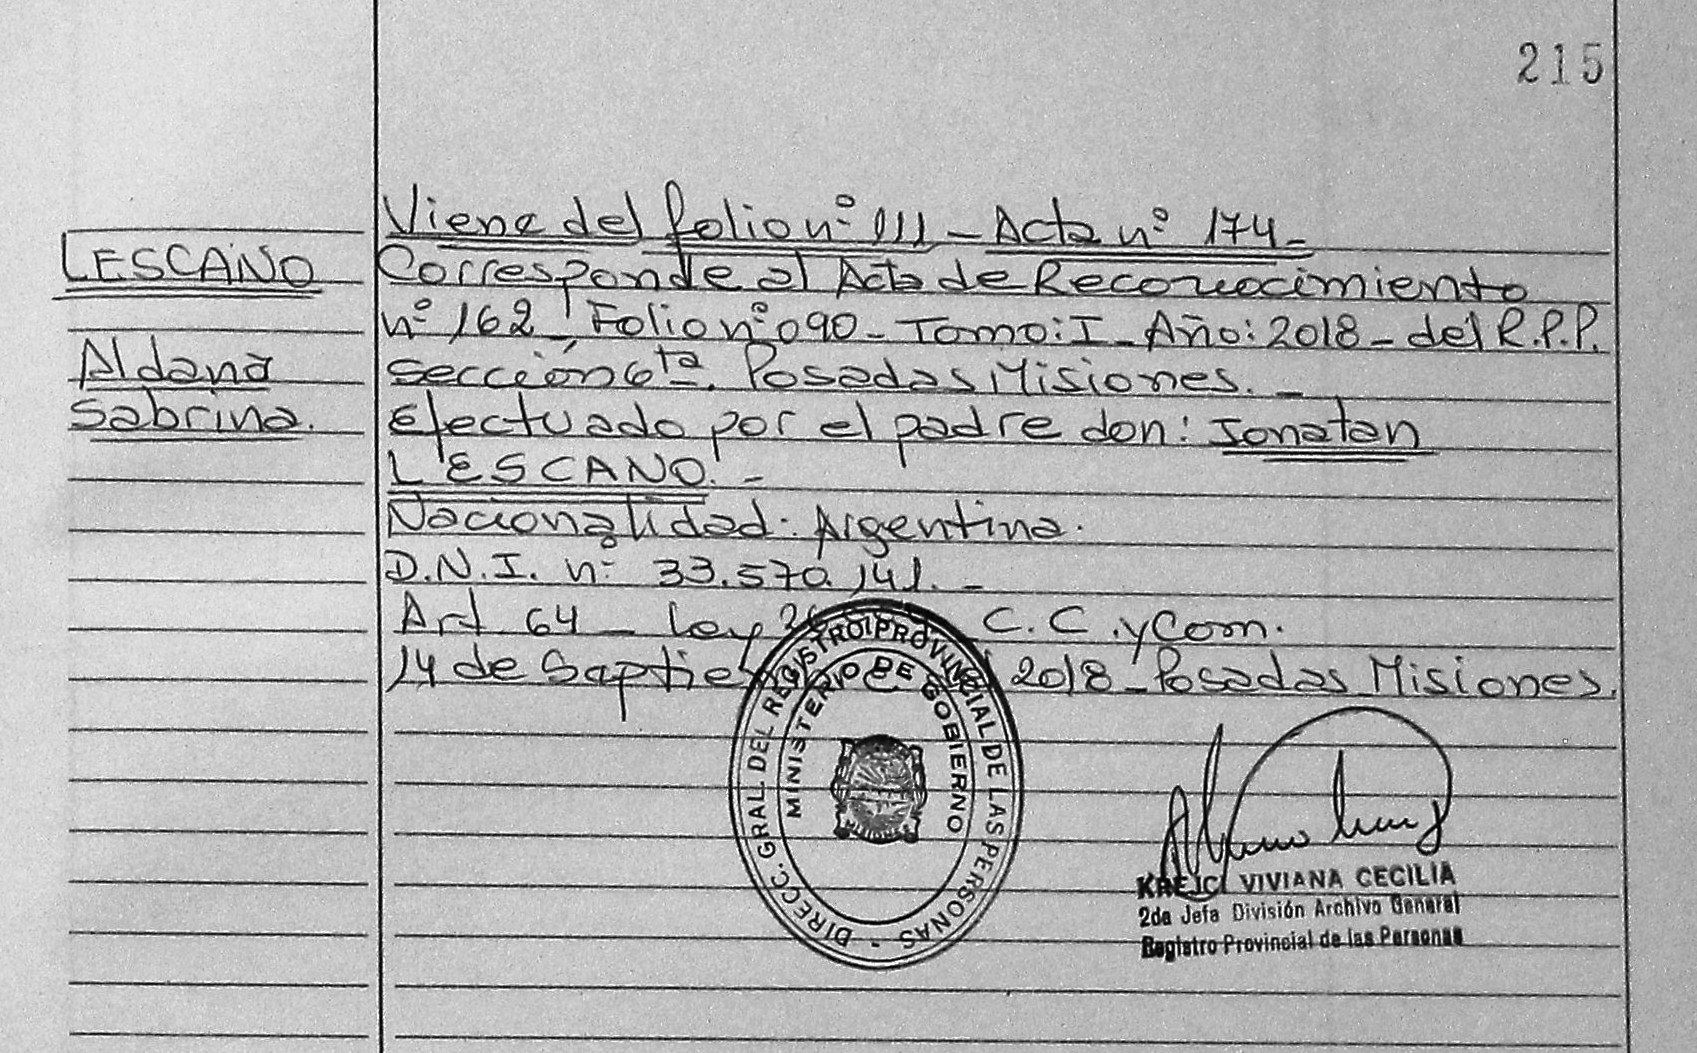 215
LESCANO
Aldana
Sabrina.
Viene del folio nº 111 - Acta nº 174 -
Corresponde al Acta de Reconocimiento
nº 162, Folio nº 090 - Tomo: I - Año: 2018 - del R.P.P.
Sección 6ta. Posadas Misiones. -
Efectuado por el padre don: Jonatan
LESCANO. -
Nacionalidad: Argentina.
D.N.I. nº 33.570.141. -
Art 64 - Ley 26 C.C. y Com.
14 de 2018 - Posadas Misiones.
DIRECC. GRAL. DEL REGISTRO PROVINCIAL DE LAS PERSONAS -
MINISTERIO DE GOBIERNO
KREJCI VIVIANA CECILIA
2da Jefa División Archivo General
Registro Provincial de las Personas